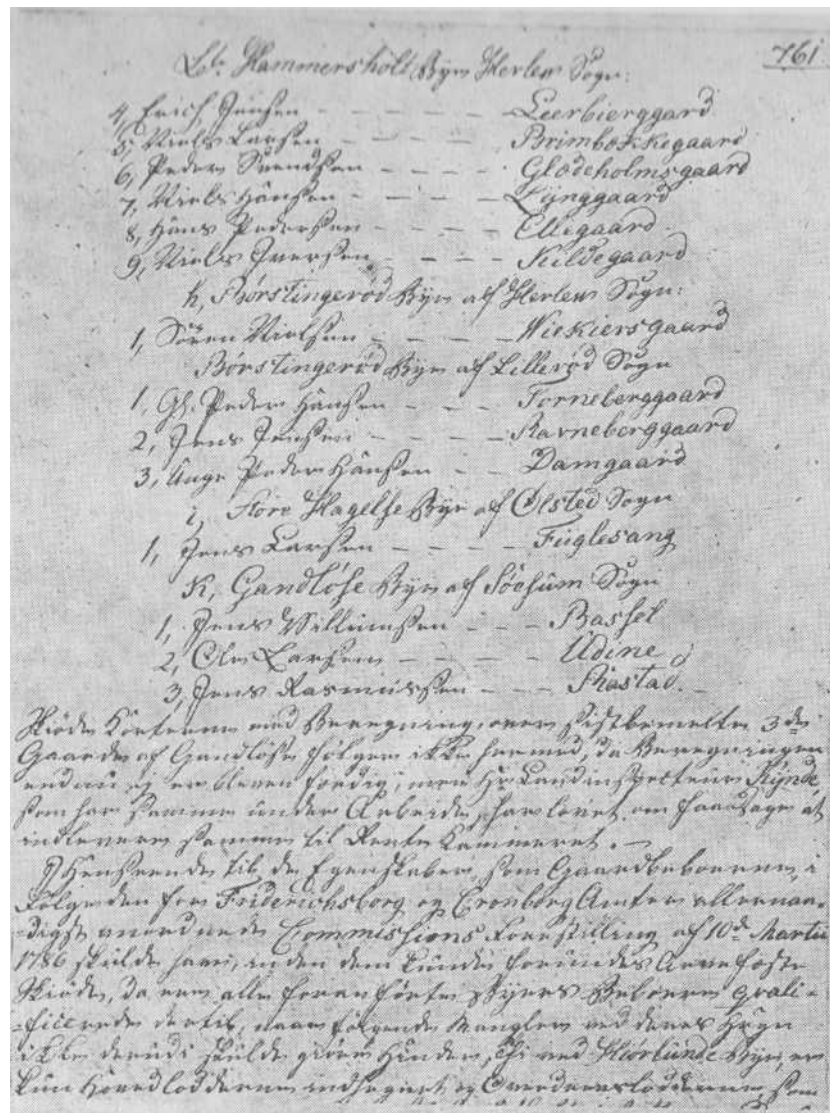 761
Lb. Hammersholt Byn Herlew Sogn:
4, Erich Jensen - - - - - Leerbierggaard
5, Niels Larsen - - - - - Brimbokkegaard
6, Peder Svendsen - - - - Glodeholmsgaard
7, Niels Hansen - - - - Lÿnggaard
8, Hans Pedersen - - - - Ellegaard
9, Niels Iversen - - - - Kildegaard
h, Börstingeröd Byn af Herlew Sogn:
1, Sören Nielsen - - - - Niekiersgaard
Börstingeröd Byn af Lilleröd Sogn
1, Gl. Peder Hansen - - - Torneberggaard
2, Jens Jensen - - - - Ravneberggaard
3, Unge Peder Hansen - - Damgaard
i, Store Hagelse Byn af Ölsted Sogn
1, Jens Larsen - - - - Fuglesang
K, Gandlöse Byn af Söosum Sogn
1, Jens Willumsen - - - Bassel
2, Ole Larsen - - - - Udine
3, Jens Rasmussen - - - Skiastad.
Skiöde Korterne med Beregning, over sidstbemelte 3de
Gaarde af Gandlöse fölger ikke hermed, da Beregningen
endnu ej er bleven færdig, men Hr Landinspecteur Kÿnde
som har samme under Arbeide, har lovet om faae Dage at
indlevere samme til Rente Kammeret. -
I Henseende til de Egenskaber, som Gaardbeboerne, i
Fölge den for Friderichsborg og Cronborg Amter allernaa-
-digst anordnede Commissions Forestilling af 10de Martii
1786 skulde have, inden dem kunde forundes Arvefæste
Skiöde, da ere alle foranförte Byers Beboere qvali-
-ficerede dertil, naar fölgende Mangler ved deres Hegn
ikke derudi skulde giöre Hinder, thi ved Hiörlunde Byn, er
kun Hovedlodderne indhegnet, og Overdrevslodderne, som